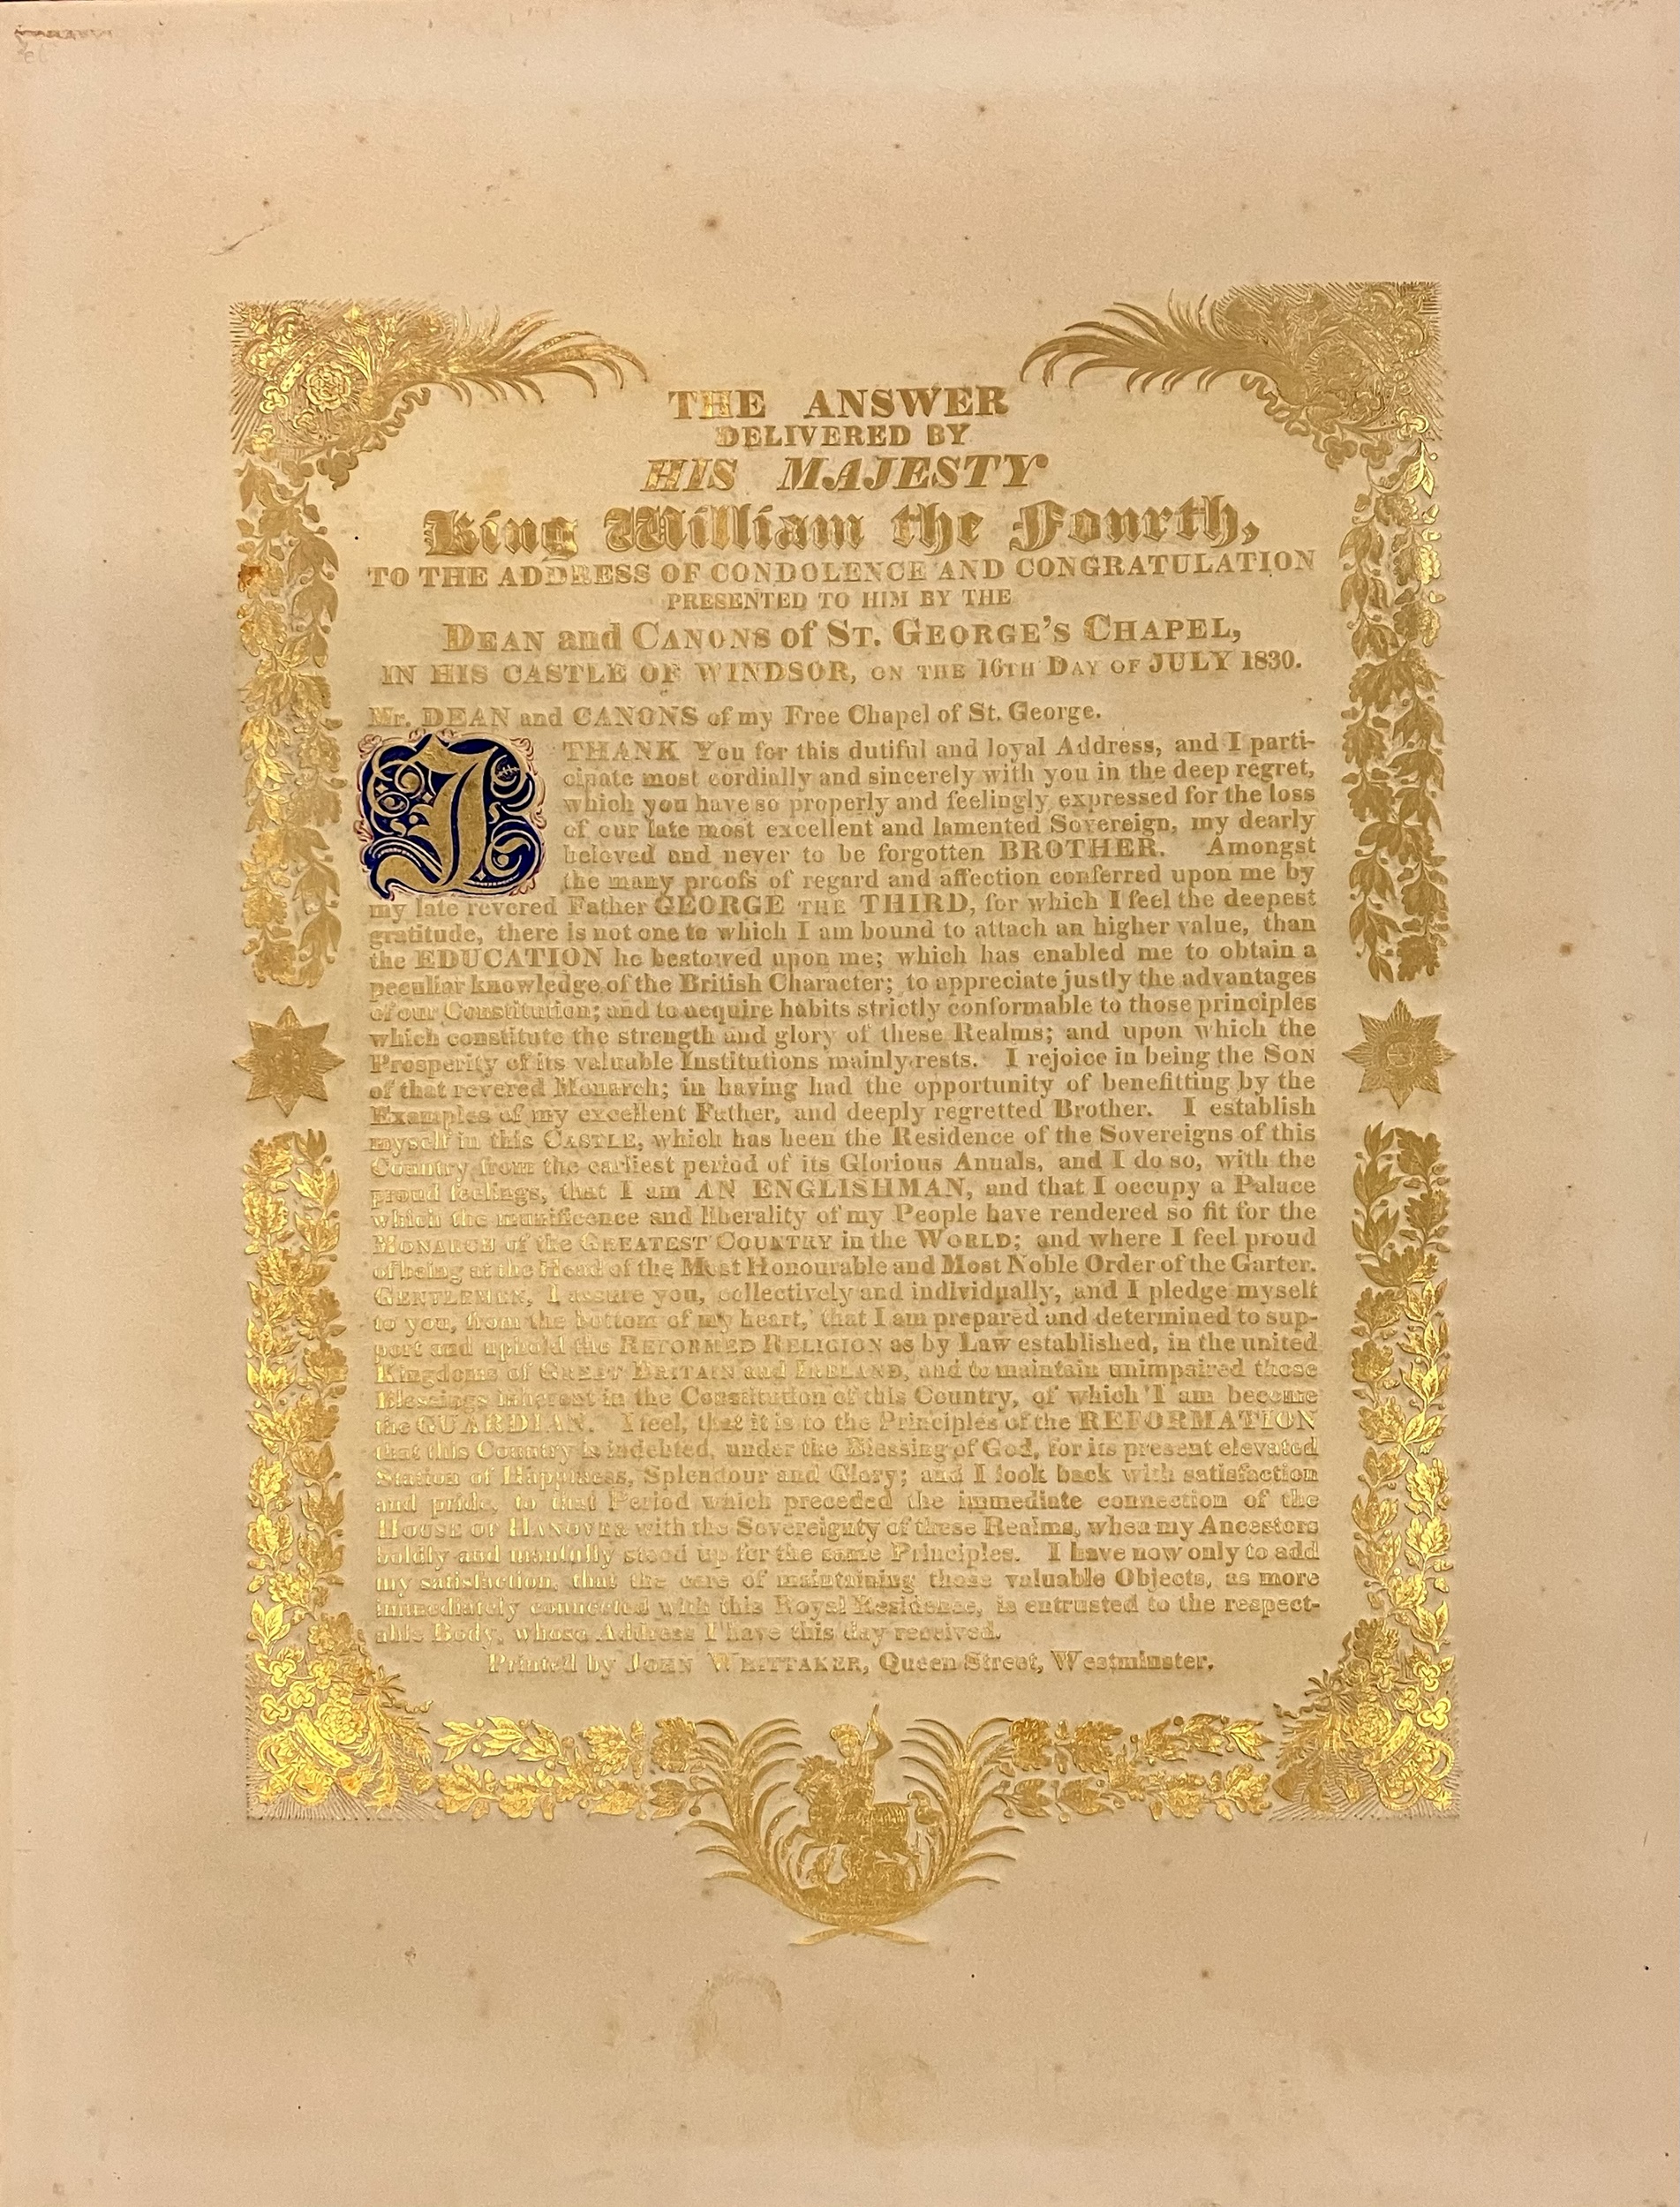 THE ANSWER
DELIVERED BY
HIS MAJESTY
King William the Fourth,
TO THE ADDRESS OF CONDOLENCE AND CONGRATULATION
PRESENTED TO HIM BY THE
DEAN and CANONS of ST. GEORGE'S CHAPEL,
IN HIS CASTLE OF WINDSOR, ON THE 16TH DAY OF JULY 1830.
Mr. DEAN and CANONS of my Free Chapel of St. George.
I THANK You for this dutiful and loyal Address, and I parti-
cipate most cordially and sincerely with you in the deep regret,
which you have so properly and feelingly expressed for the loss
of our late most excellent and lamented Sovereign, my dearly
beloved and never to be forgotten BROTHER. Amongst
the many proofs of regard and affection conferred upon me by
my late revered Father GEORGE THE THIRD, for which I feel the deepest
gratitude, there is not one to which I am bound to attach an higher value, than
the EDUCATION he bestowed upon me; which has enabled me to obtain a
peculiar knowledge of the British Character; to appreciate justly the advantages
of our Constitution; and to acquire habits strictly conformable to those principles
which constitute the strength and glory of these Realms; and upon which the
Prosperity of its valuable Institutions mainly rests. I rejoice in being the SON
of that revered Monarch; in having had the opportunity of benefitting by the
Examples of my excellent Father, and deeply regretted Brother. I establish
myself in this CASTLE, which has been the Residence of the Sovereigns of this
Country from the earliest period of its Glorious Annals, and I do so, with the
proud feelings, that I am AN ENGLISHMAN, and that I occupy a Palace
which the munificence and liberality of my People have rendered so fit for the
MONARCH of the GREATEST COUNTRY in the WORLD; and where I feel proud
of being at the Head of the Most Honourable and Most Noble Order of the Garter.
GENTLEMEN, I assure you, collectively and individually, and I pledge myself
to you, from the bottom of my heart, that I am prepared and determined to sup-
port and uphold the REFORMED RELIGION as by Law established, in the united
Kingdoms of GREAT BRITAIN and IRELAND, and to maintain unimpaired those
Blessings inherent in the Constitution of this Country, of which I am become
the GUARDIAN. I feel, that it is to the Principles of the REFORMATION
that this Country is indebted, under the Blessing of God, for its present elevated
Station of Happiness, Splendour and Glory; and I look back with satisfaction
and pride, to that Period which preceded the immediate connection of the
HOUSE OF HANOVER with the Sovereignty of these Realms, when my Ancestors
boldly and manfully stood up for the same Principles. I have now only to add
my satisfaction, that the care of maintaining those valuable Objects, as more
immediately connected with this Royal Residence, is entrusted to the respect-
able Body, whose Address I have this day received.
Printed by JOHN WHITTAKER, Queen Street, Westminster.